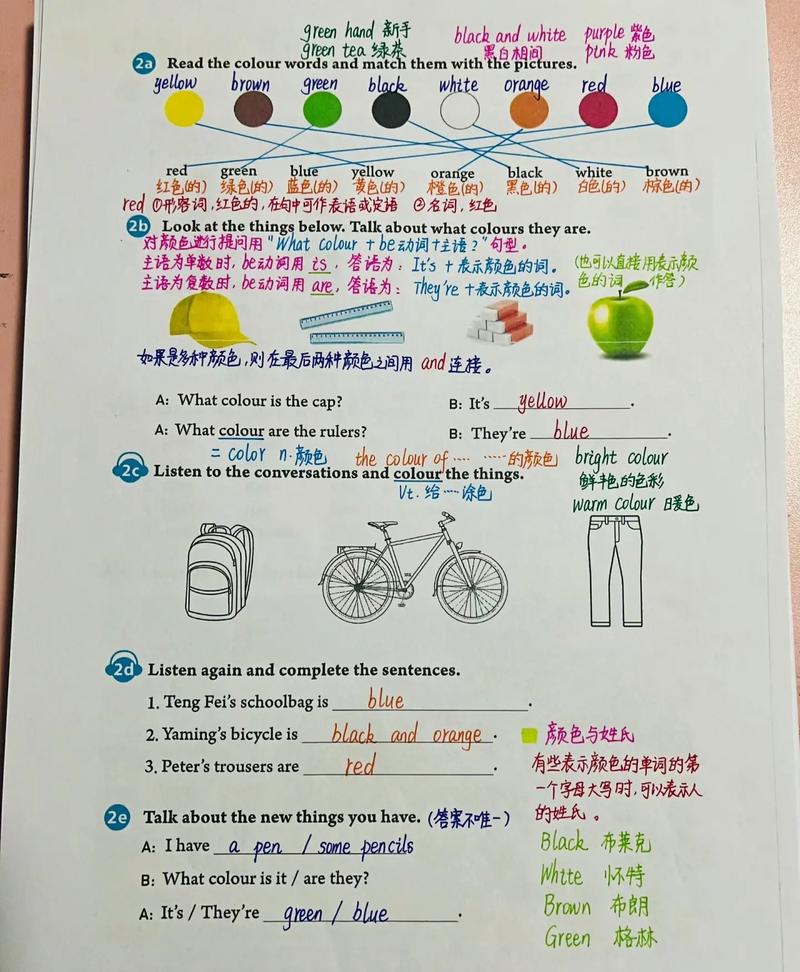 green hand 新手
green tea 绿茶
black and white
黑白相间
purple 紫色
pink 粉色
2a Read the colour words and match them with the pictures.
yellow brown green black white orange red blue
red green blue yellow orange black white brown
红色(的) 绿色(的) 蓝色(的) 黄色(的) 橙色(的) 黑色(的) 白色(的) 棕色(的)
red ①形容词,红色的,在句中可作表语或定语 ②名词,红色
2b Look at the things below. Talk about what colours they are.
对颜色进行提问用"What colour + be动词+主语?"句型。
主语为单数时, be动词用 is, 答语为: It's + 表示颜色的词。
主语为复数时, be动词用 are, 答语为: They're +表示颜色的词。
(也可以直接用表示颜
色的词 作答)
如果是多种颜色,则在最后两种颜色之间用 and 连接。
A: What colour is the cap? B: It's yellow.
A: What colour are the rulers? B: They're blue.
= color n.颜色 the colour of…… ……的颜色
bright colour
鲜艳的色彩
warm colour 暖色
2c Listen to the conversations and colour the things.
Vt. 给……涂色
2d Listen again and complete the sentences.
1. Teng Fei's schoolbag is blue.
2. Yaming's bicycle is black and orange.
3. Peter's trousers are red.
颜色与姓氏
有些表示颜色的单词的第
一个字母大写时,可以表示人
的姓氏。
Black 布莱克
White 怀特
Brown 布朗
Green 格林
2e Talk about the new things you have. (答案不唯一)
A: I have a pen / some pencils
B: What colour is it / are they?
A: It's / They're green / blue.